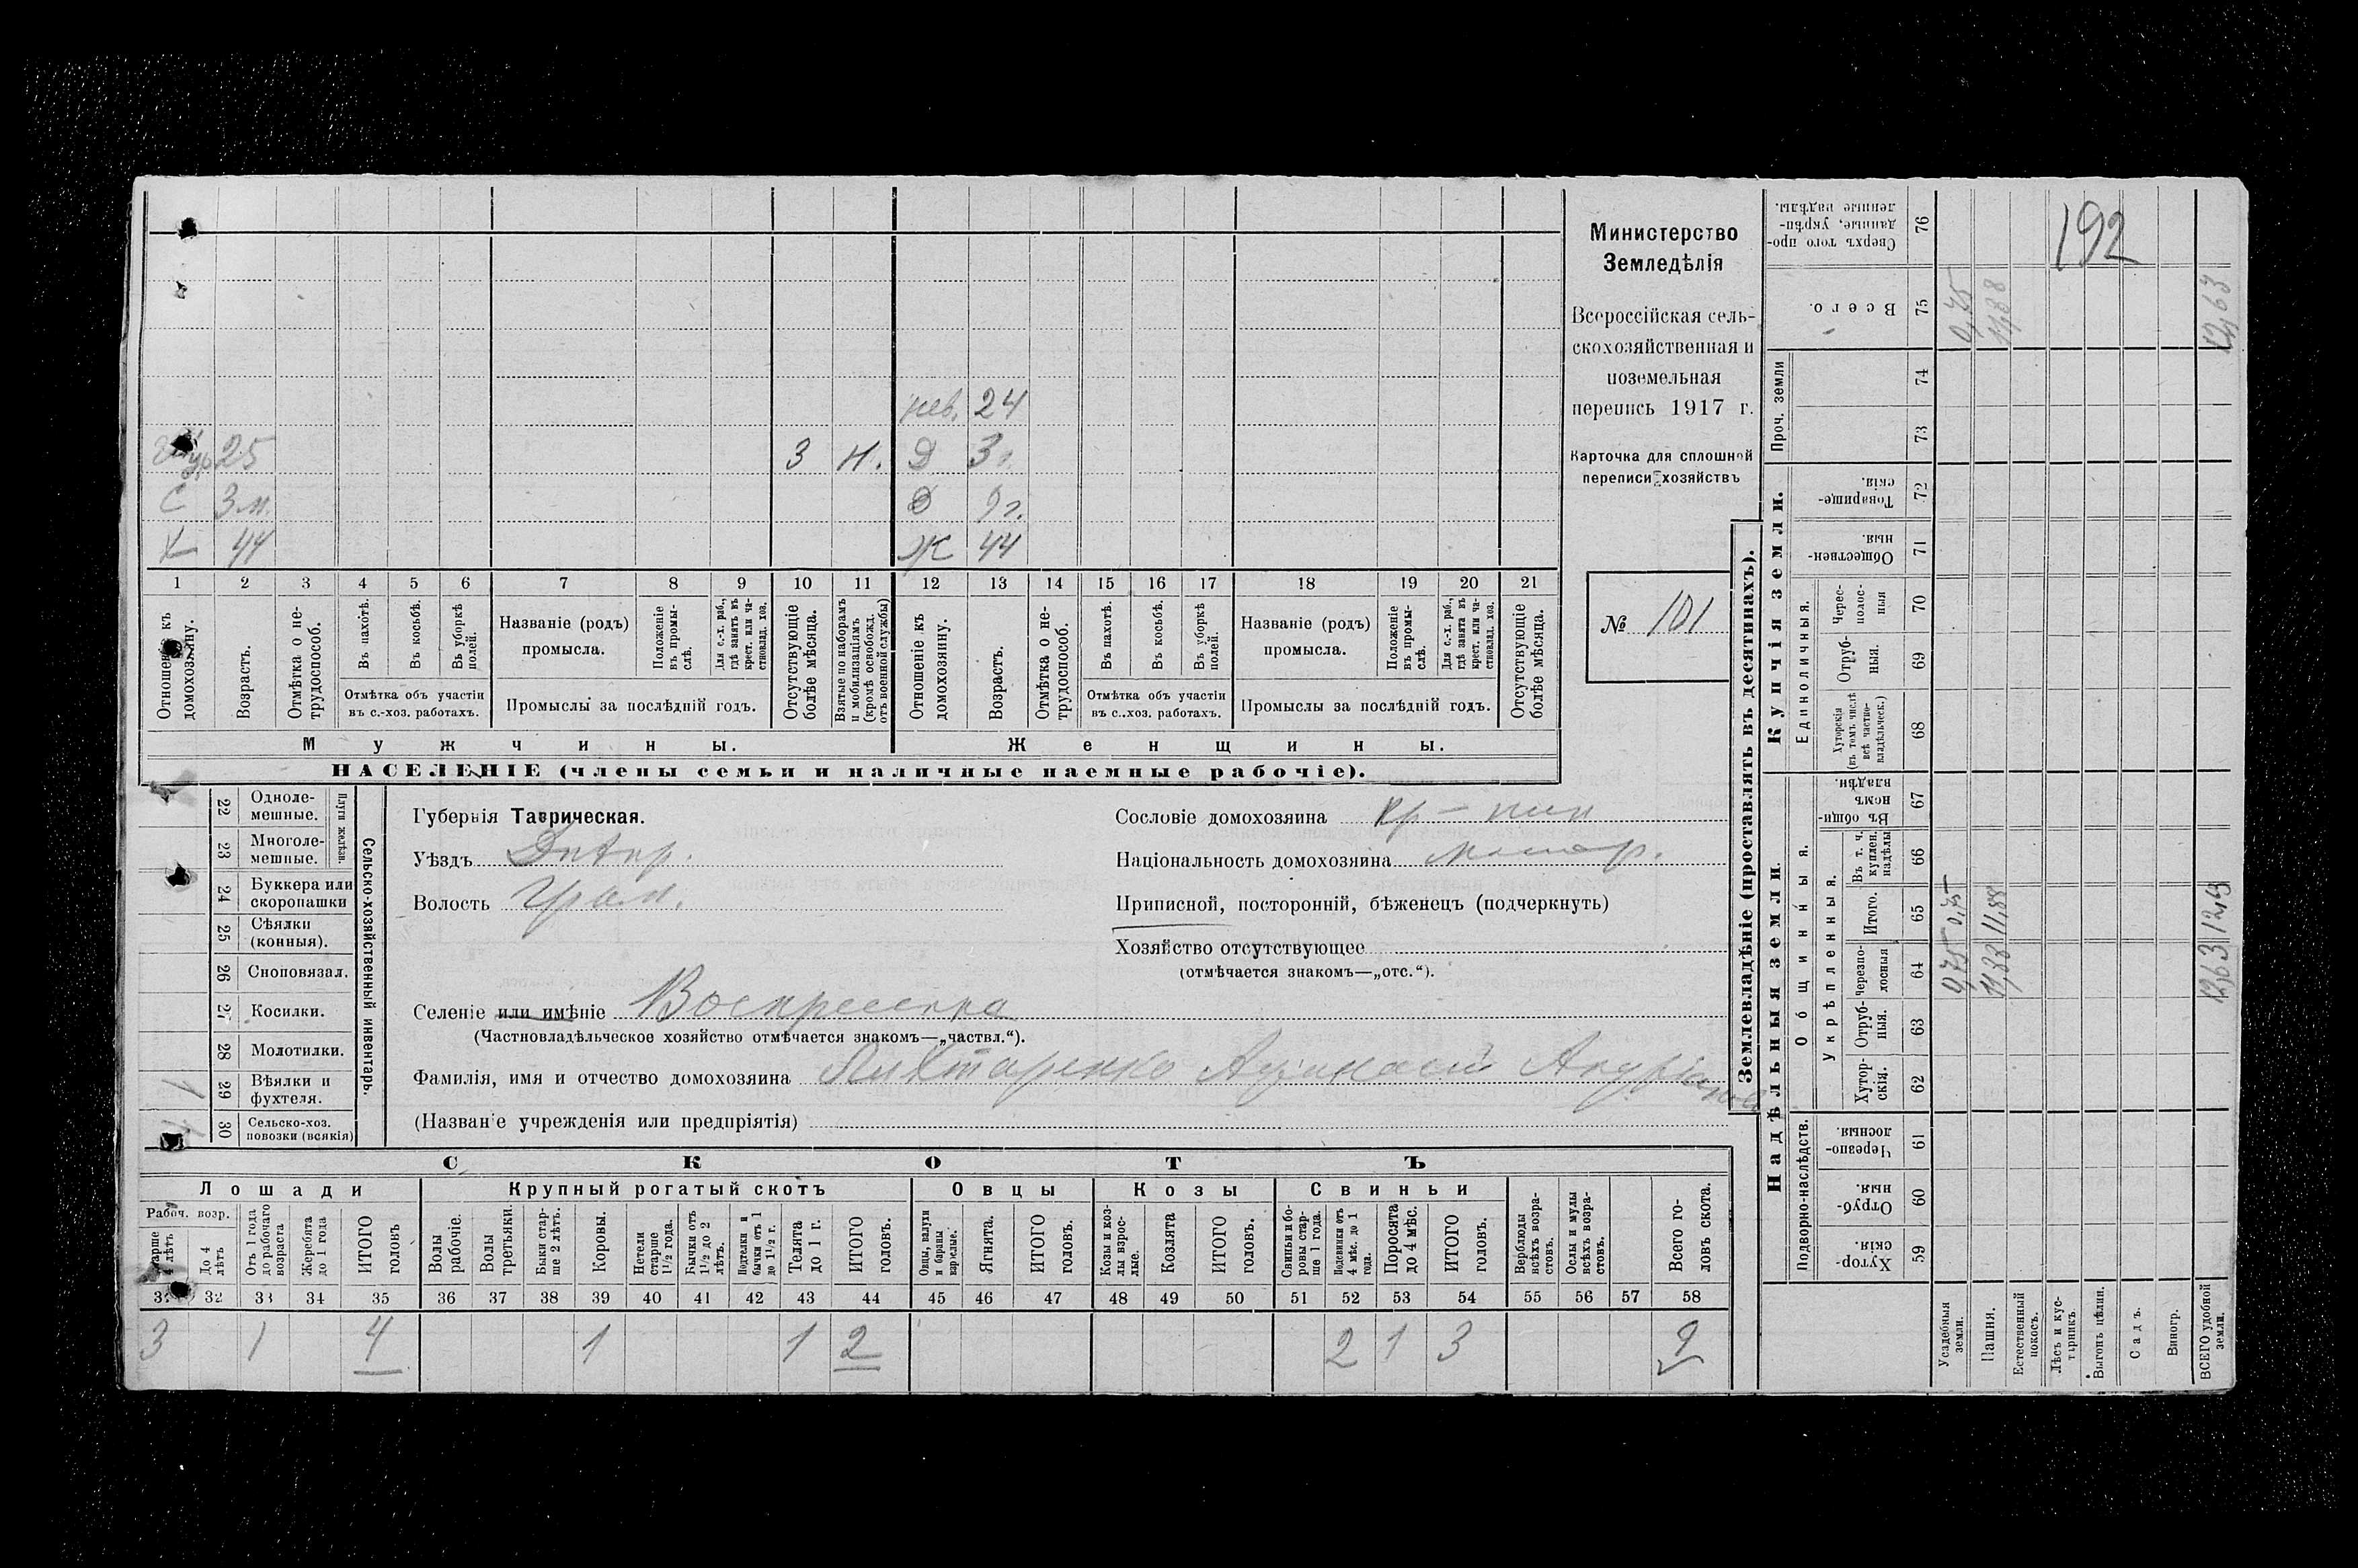 192
Министерство
Земледѣлія
Всероссійская сель-
скохозяйственная и
поземельная
перепись 1917 г.
Карточка для сплошной
переписи хозяйствъ
№ 101
нев. 24
25 3 н. Д 3 г.
С 3 м. Д 9 г.
Х 44 Ж 44
1 2 3 4 5 6 7 8 9 10 11 12 13 14 15 16 17 18 19 20 21
Отношеніе къ домохозяину.
Возрастъ.
Отмѣтка о не-трудоспособ.
Въ пахотѣ.
Въ косьбѣ.
Въ уборкѣ полей.
Отмѣтка объ участіи
въ с.-хоз. работахъ.
Названіе (родъ)
промысла.
Положеніе въ промы-слѣ.
Для с.-х. раб., гдѣ занятъ въ крест. или ча-стновлад. хоз.
Промыслы за послѣдній годъ.
Отсутствующіе болѣе мѣсяца.
Взятые по наборамъ и мобилизаціямъ (кромѣ освобожд. отъ военной службы)
Отношеніе къ домохозяину.
Возрастъ.
Отмѣтка о не-трудоспособ.
Въ пахотѣ.
Въ косьбѣ.
Въ уборкѣ полей.
Отмѣтка объ участіи
въ с.-хоз. работахъ.
Названіе (родъ)
промысла.
Положеніе въ промы-слѣ.
Для с.-х. раб., гдѣ занята въ крест. или ча-стновлад. хоз.
Промыслы за послѣдній годъ.
Отсутствующіе болѣе мѣсяца.
Мужчины. Женщины.
НАСЕЛЕНІЕ (члены семьи и наличные наемные рабочіе).
Сельско-хозяйственный инвентарь.
Плуги желѣзн.
22 Одноле-мешные.
23 Многоле-мешные.
24 Буккера или скоропашки
25 Сѣялки (конныя).
26 Сноповязал.
27 Косилки.
28 Молотилки.
29 Вѣялки и фухтеля. 1
30 Сельско-хоз. повозки (всякія)
Губернія Таврическая.
Уѣздъ Днѣпр.
Волость
Селеніе или имѣніе Воскресенка
(Частновладѣльческое хозяйство отмѣчается знакомъ—„частвл.“).
Фамилія, имя и отчество домохозяина
(Названіе учрежденія или предпріятія)
Сословіе домохозяина кр-нин
Національность домохозяина малор.
Приписной, посторонній, бѣженецъ (подчеркнуть)
Хозяйство отсутствующее
(отмѣчается знакомъ—„отс.“).
СКОТЪ
Лошади Крупный рогатый скотъ Овцы Козы Свиньи
Рабоч. возр.
Старше 4 лѣтъ
До 4 лѣтъ
Отъ 1 года до рабочаго возраста
Жеребята до 1 года
ИТОГО головъ
Волы рабочіе.
Волы третьяки.
Быки стар-ше 2 лѣтъ.
Коровы.
Нетели старше 1½ года.
Бычки отъ 1½ до 2 лѣтъ.
Подтелки и бычки отъ 1 до 1½ г.
Телята до 1 г.
ИТОГО головъ.
Овцы, валухи и бараны взрослые.
Ягнята.
ИТОГО головъ.
Козы и коз-лы взрос-лые.
Козлята
ИТОГО головъ.
Свиньи и бо-ровы стар-ше 1 года.
Подсвинки отъ 4 мѣс. до 1 года.
Поросята до 4 мѣс.
ИТОГО головъ.
Верблюды всѣхъ возра-стовъ.
Ослы и мулы всѣхъ возра-стовъ.
Всего го-ловъ скота.
31 32 33 34 35 36 37 38 39 40 41 42 43 44 45 46 47 48 49 50 51 52 53 54 55 56 57 58
3 1 4 1 1 2 2 1 3 9
Землевладѣніе (проставлять въ десятинахъ).
Надѣльныя земли.
Купчія земли.
Проч. земли
Подворно-наслѣдств.
Общинныя.
Укрѣпленныя.
Единоличныя.
59 Хутор-скія.
60 Отруб-ныя.
61 Черезпо-лосныя
62 Хутор-скія.
63 Отруб-ныя.
64 Черезпо-лосныя
65 Итого.
66 Въ т. ч. куплен. надѣлы
67 Въ общи-номъ владѣн.
68 Хуторскія (въ томъ числѣ всѣ частно-владѣльческ.)
69 Отруб-ныя.
70 Черес-полос-ныя
71 Обществен-ныя.
72 Товарище-скія.
73
74
75 Всего.
76 Сверхъ того про-данные, укрѣп-ленные надѣлы.
Усадебныя земли. 0,75 0,75 0,75
Пашня. 11,88 11,88 11,88
Естественный покосъ.
Лѣсъ и кус-тарникъ.
Выгонъ цѣлин.
Садъ.
Виногр.
ВСЕГО удобной земли. 12,63 12,63 12,63